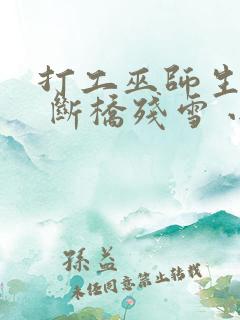 打工巫師生
斷橋殘雪、
孫益
未任同意禁止轉載